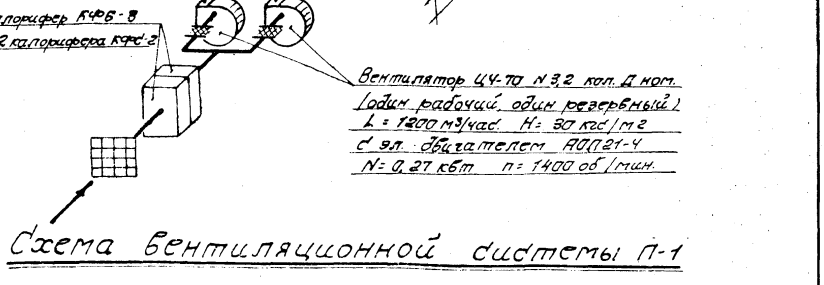 калорифер КФБ-8
2 калорифера КФС-2
Вентилятор Ц4-70 N3,2 кол. Д ном.
(один рабочий, один резервный)
L = 1200 м³/час. H= 30 кгс/м2
с эл. двигателем АОЛ21-4
N= 0,27 квт n= 1400 об/мин.
Схема вентиляционной системы П-1